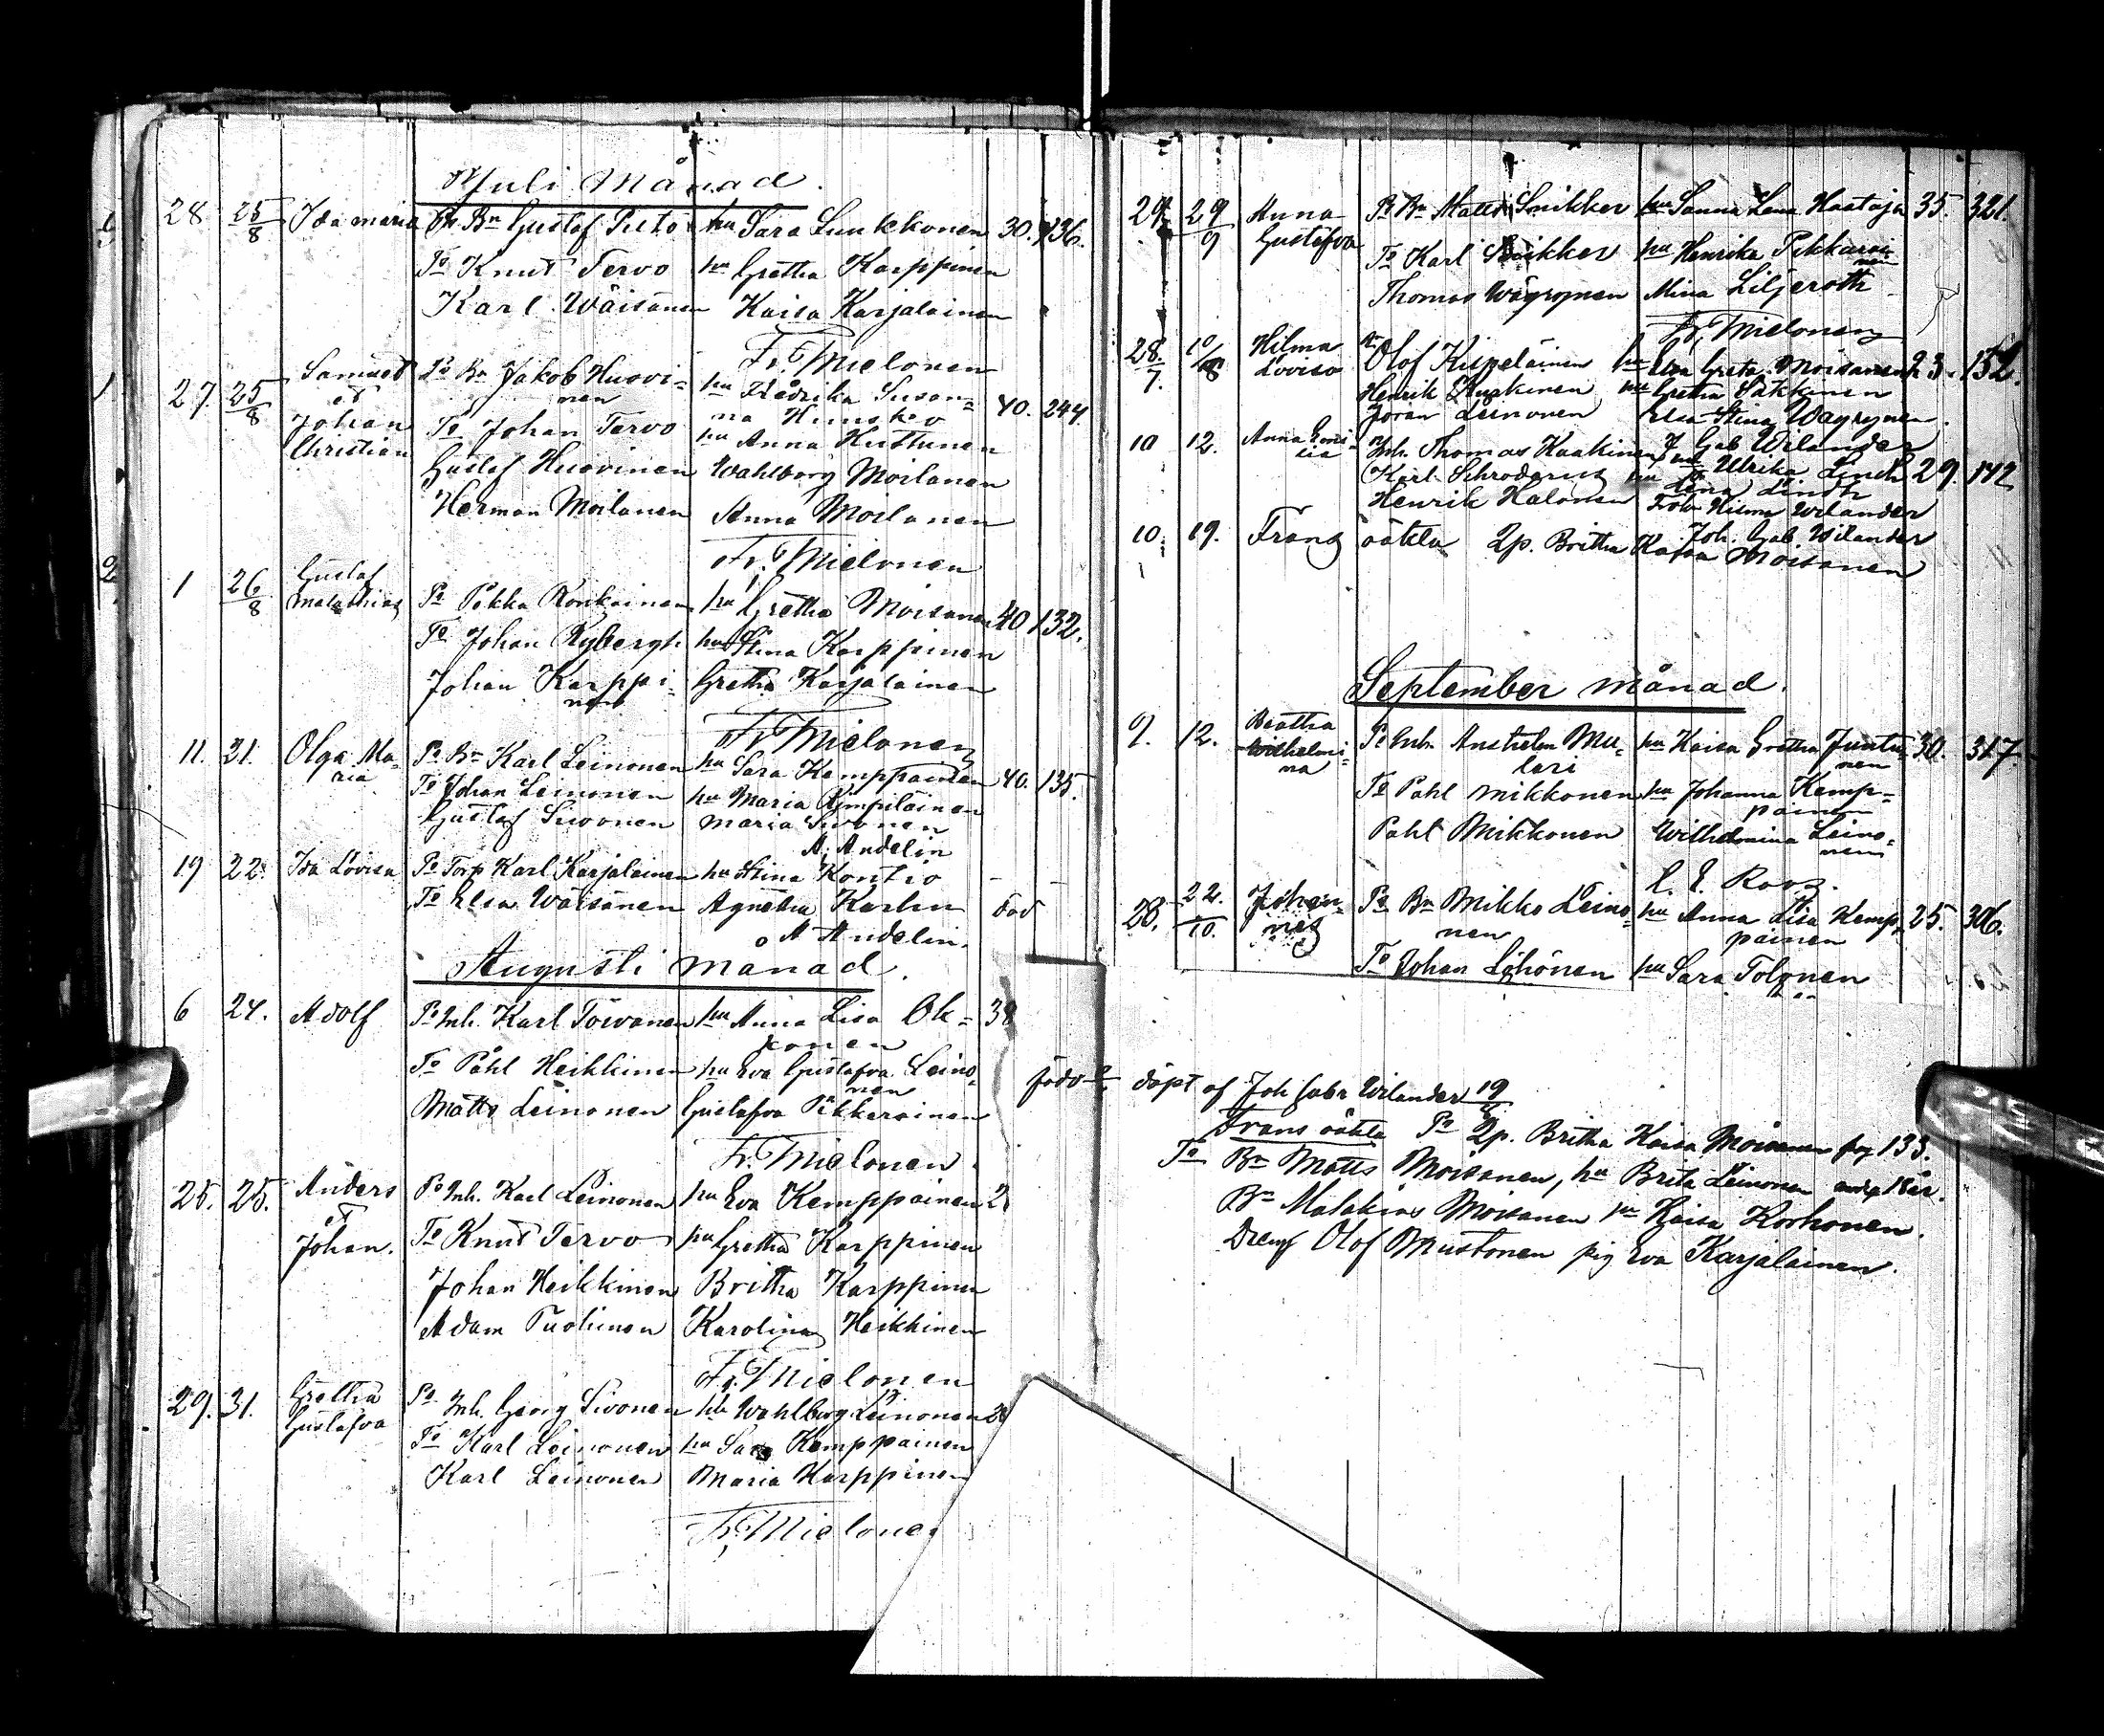 Juli Månad.
28 25/8 Ida Maria Bn Gustaf hu Sara Lunkkonen 30. 136.
To Knut Tervo hu Gretha Karppinen
Karl Wäisänen Kaisa Karjalainen
Fr. Mielonen
27. 25/8 Samuel et Johan Christian Po Bn Jakob Huovi= hu Fredrika Susan= 40. 244.
nen na
To Johan Tervo hu Anna Huttunen
Gustaf Huovinen Wahlborg Moilanen
Herman Moilanen Anna Moilanen
Fr. Mielonen
1 26/8 Gustaf Malachias Po Pekka Ronkainen hu Gretha Moisanen 40 132.
To Johan Rybergh hu Stina Karppinen
Johan Karppi= Gretha Karjalainen
nen
Fr Mielonen
11. 21. Olga Ma= Po Bn Karl Leinonen hu Sara Kemppainen 40. 135.
ria To Johan Leinonen hu Maria
Gustaf Siwonen Maria Siwonen
A. Andelin
19 22. Ida Lovisa Po Torp Karl Karjalainen hu Stina Kontio
To Elsa Wäisänen Agnetha Karlin
A Andelin.
Augusti månad.
6 24. Adolf Po Inh. Karl Toivanen hu Anna Lisa Ok= 38
konen
To Påhl Heikkinen hu Eva Gustafva Leino=
nen
Matts Leinonen Gustafva Pikkarainen
Fr. Mielonen
25. 25. Anders Po Inh. Karl Leinonen hu Eva Kemppainen 2
et
Johan. To Knut Tervo hu Gretha Karppinen
Johan Heikkinen Britha Karppinen
Adam Tuohinen Karolina Heikkinen
Fr. Mielonen
29. 31. Gretha Po Inh. Georg Sivonen hu Wahlborg Leinonen
Gustafva To Karl Leinonen hu Sara Kemppainen
Karl Leinonen Maria Karppinen
Fr. Mielonen
29. 29/9 Anna Po Bn Matts Snikker hu Sanna Lena Haataja 35. 321.
Gustafva To Karl Snikker hu Henrika Pikkarai
nen
Thomas Wäyrynen Mina Liljeroth
Fr. Mielonen
28./7. 10/8 Hilma Lovisa Olof hu Elsa Greta Moisanen 23. 152.
Henrik hu Gretha Säkkinen
Göran Leinonen Elsa Stina Wäyrynen.
J Gab Wilander
10 12. Anna Inh. Thomas Kaakinen hu Ulrika Lindh 29. 142
Karl Schroderus hu Lena Lindh
Henrik Halonen Frök Hilma Wilander
Joh. Gab Wilander
10. 19. Frans oäkta Qp. Britha Kaisa Moisanen
September månad.
9. 12. Beatha Po Inh. Anshelm Mu= hu Kaisa Gretha Juntu= 30. 317
Wilhelmi= lari nen
na To Pahl Mikkonen hu Johanna Kemp=
painen
Pahl Mikkonen Wilhelmina Leino=
nen
C. E. Roos.
28. 22./10. Johan= Po Bn Mikko Leino= hu Anna Lisa Kemp= 25. 306.
nes nen painen
To Johan hu Sara Tolonen
född döpt af Joh Gabr Wilander 19/8
Frans oäkta Po Qp. Britha Kaisa Moisanen pag 133.
To Bn Matts Moisanen, hu Brita Leinonen 18 år.
Bn Malakias Moisanen hu Kaisa Korhonen.
Dreng Olof Mustonen pig Eva Karjalainen.